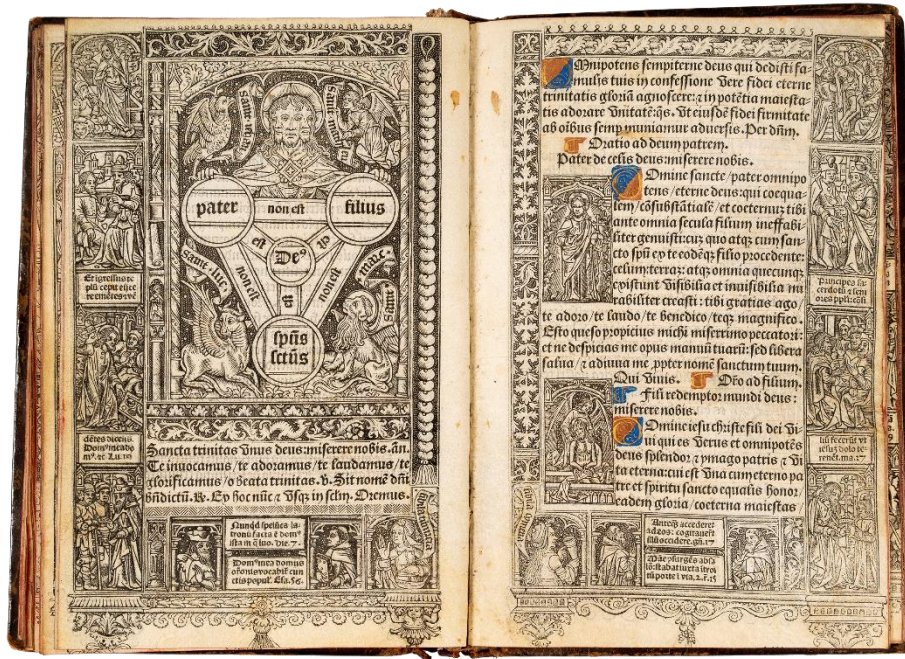 Sanct. ioh.
Sanct. mat.
pater
non est
filius
est
Deꝰ
est
non est
non est
est
Sanct. luc.
Sanct. marc.
spūs
sctūs
Et īgressus te
Sancta trinitas Unus deus: miserere nobis. an.
Te inuocamus / te adoramus / te laudamus / te
glorificamus / o beata trinitas. ℣. Sit nomē dñi
bñdictū. ℟. Ex hoc nūc ⁊ Usqꝫ in sclm. Oremus.
Nunqd spelūca la
tronū facta ē domꝰ
Domꝰ mea domus
orōnis vocabit̄ cun
ctis popul. Esa. 56.
OMnipotens sempiterne deus qui dedisti fa-
mulis tuis in confessione Vere fidei eterne
trinitatis gloriā agnoscere: ⁊ in potētia maiesta-
tis adorare Unitatē: q̄s. Ut eiusdē fidei firmitate
ab oībus semp muniamur aduersis. Per dñm.
Oratio ad deum patrem.
Pater de celis deus: miserere nobis.
DOmine sancte / pater omnipo
tens / eterne deus: qui coequa-
lem / cōsubstātialē / et coeternū tibi
ante omnia secula filium ineffabi-
liter genuisti: cū quo atqꝫ cum san-
cto spū ex te eodēqꝫ filio procedente:
celum: terrā: atqꝫ omnia quecunqꝫ
existunt Visibilia et inuisibilia mi
rabiliter creasti: tibi gratias ago /
te adoro / te laudo / te benedico / teqꝫ magnifico.
Esto queso propicius michi miserrimo peccatori:
et ne despicias me opus manuū tuarū: sed libera
salua / ⁊ adiuua me ꝓpter nomē sanctum tuum.
Qui Viuis. Orō ad filium.
Fili redemptor mundi deus:
miserere nobis.
DOmine iesu christe fili dei Vi-
ui qui es Verus et omnipotēs
deus splendor ⁊ ymago patris ⁊ Vi
ta eterna: cui est Una cum eterno pa
tre et spiritu sancto equalis honor /
eadem gloria / coeterna maiestas
Principes sa
cerdotū ⁊ seni
ores ppli: cōsi
liū fecerūt vt
iesū dolo te-
nerēt. ma. 27